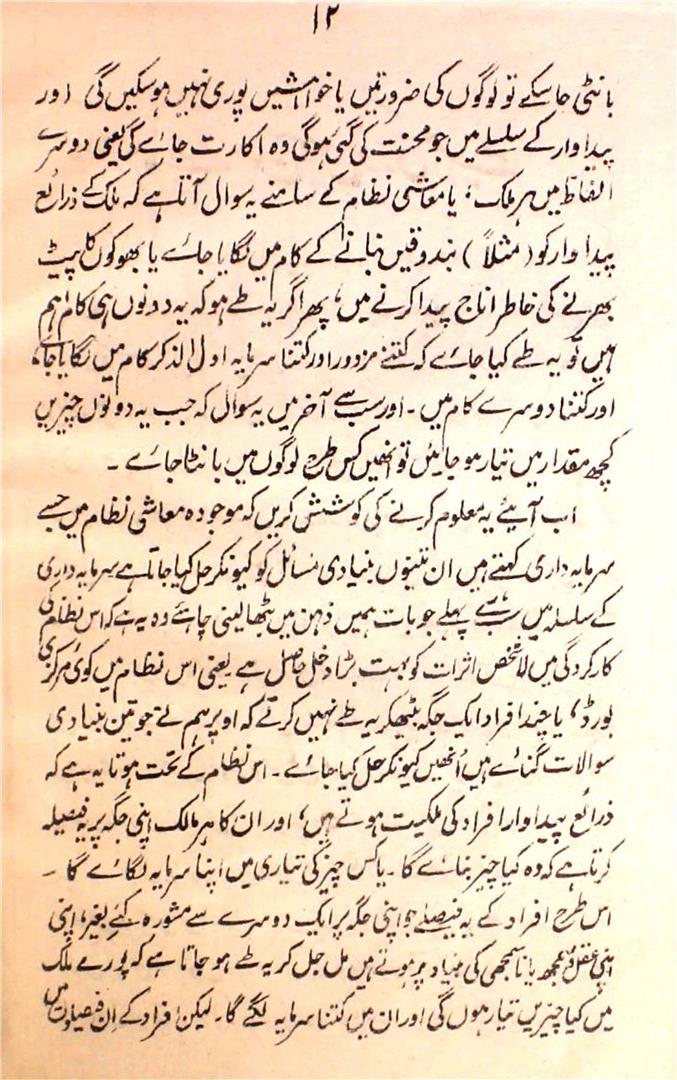 ۱۲
بانٹی جاسکے تو لوگوں کی ضرورتیں یا خواہشیں پوری نہیں ہوسکیں گی اور
پیداوار کے سلسلے میں جو محنت کی گئی ہوگی وہ اکارت جائے گی یعنی دوسرے
الفاظ میں ہر ملک، یا معاشی نظام کے سامنے یہ سوال آتا ہے کہ ملک کے ذرائع
پیداوار کو (مثلاً) بندوقیں بنانے کے کام میں لگایا جائے یا بھوکوں کا پیٹ
بھرنے کی خاطر اناج پیدا کرنے میں، پھر اگر یہ طے ہو کہ یہ دونوں ہی کام اہم
ہیں تو یہ طے کیا جائے کہ کتنے مزدور اور کتنا سرمایہ اول الذکر کام میں لگایا جائے،
اور کتنا دوسرے کام میں۔ اور سب سے آخر میں یہ سوال کہ جب یہ دونوں چیزیں
کچھ مقدار میں تیار ہو جائیں تو انھیں کس طرح لوگوں میں بانٹا جائے۔
اب آیئے یہ معلوم کرنے کی کوشش کریں کہ موجودہ معاشی نظام میں جسے
سرمایہ داری کہتے ہیں ان تینوں بنیادی مسائل کو کیونکر حل کیا جاتا ہے سرمایہ داری
کے سلسلہ میں سب سے پہلے جو بات ہمیں ذہن میں بٹھا لینی چاہئے وہ یہ ہے کہ اس نظام کی
کارکردگی میں لاشخص اثرات کو بہت بڑا دخل حاصل ہے یعنی اس نظام میں کوئی مرکزی
بورڈ، یا چند افراد ایک جگہ بیٹھکر یہ طے نہیں کرتے کہ اوپر ہم نے جو تین بنیادی
سوالات گنائے ہیں اُنھیں کیونکر حل کیا جائے۔ اس نظام کے تحت ہوتا یہ ہے کہ
ذرائع پیداوار افراد کی ملکیت ہوتے ہیں، اور ان کا ہر مالک اپنی جگہ پر یہ فیصلہ
کرتا ہے کہ وہ کیا چیز بنائے گا۔ یا کس چیز کی تیاری میں اپنا سرمایہ لگائے گا۔
اس طرح افراد کے یہ فیصلے جو اپنی جگہ پر ایک دوسرے سے مشورہ کئے بغیر، اپنی
اپنی عقل و سمجھ یا ناسمجھی کی بنیاد پر ہوتے ہیں مل جل کر یہ طے ہو جاتا ہے کہ پورے ملک
میں کیا چیزیں تیار ہوں گی اور ان میں کتنا سرمایہ لگے گا۔ لیکن افراد کے اِن فیصلوں میں